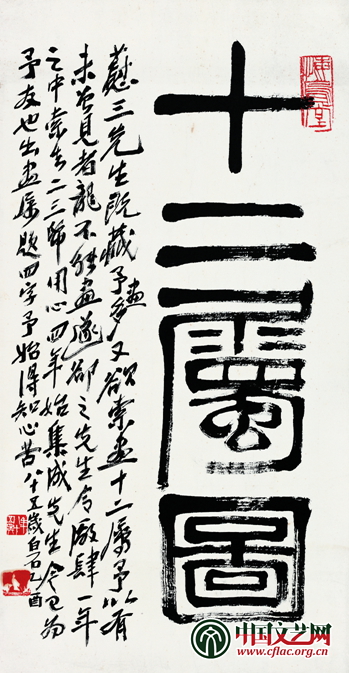 十二屬圖
三先生既藏予畫多又欲索畫十二屬予以有
未曾見者龍不能畫遂卻之先生令廠肆一年
之中索去二三幅用心四年始集成先生今已為
予友也出畫屬題四字予始得知心苦八十五歲白石乙酉
中国文艺网
www.cflac.org.cn